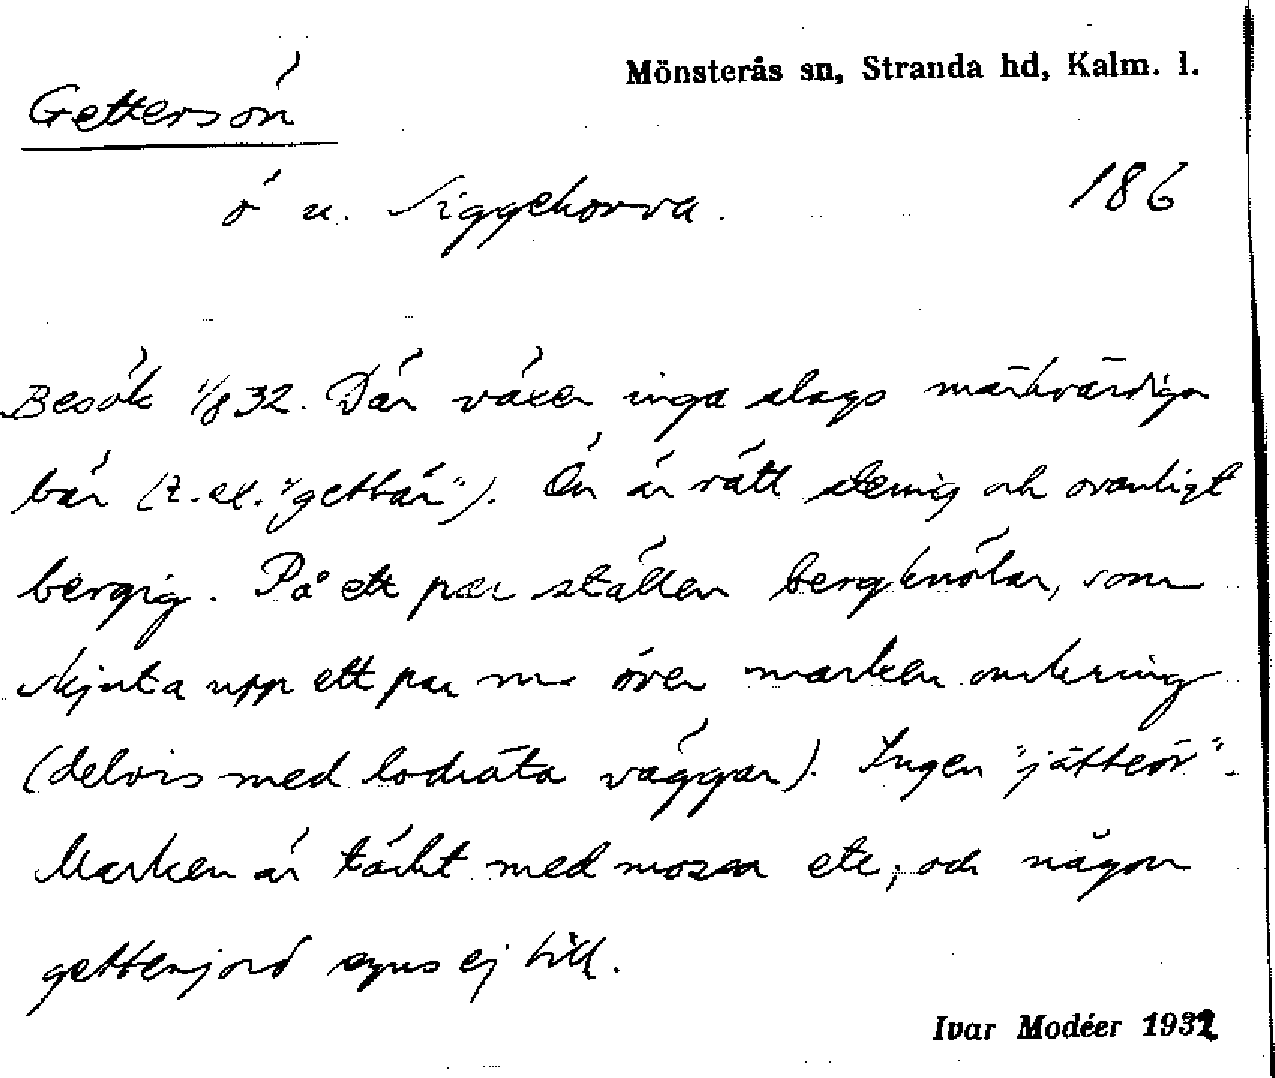 Mönsterås sn, Stranda hd, Kalm. l.
Gettersön
ö u. Siggehorva. 186
Besök 1/8 32. Där växer inga slags märkvärdiga
bär (t. ex. "getbär"). Ön är rätt stenig och ovanligt
bergig. På ett par ställen bergknölar, som
skjuta upp ett par m över marken omkring
(delvis med lodräta väggar). Ingen "jätteör".
Marken är täckt med mossa etc, och någon
getterjord syns ej till.
Ivar Modéer 1932